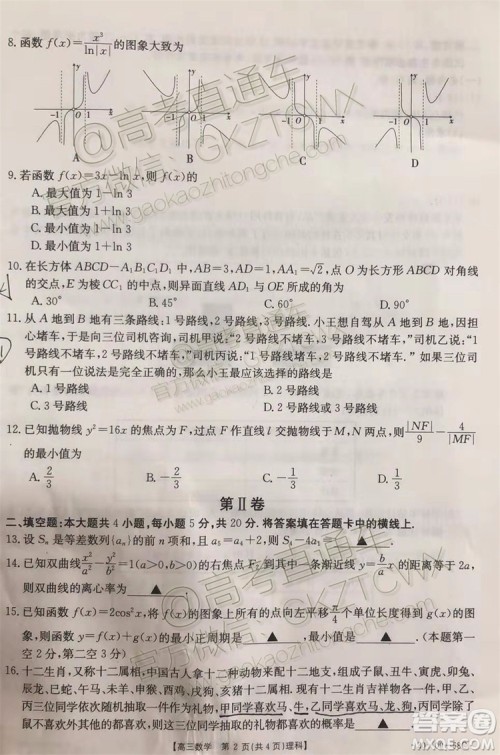 8. 函数 f(x)=x³/ln|x| 的图象大致为
y y y y
-1 O 1 x -1 O 1 x -1 O 1 x -1 O 1 x
A B C D
9. 若函数 f(x)=3x-ln x,则 f(x)的
A. 最大值为 1-ln 3
B. 最小值为 1-ln 3
C. 最大值为 1+ln 3
D. 最小值为 1+ln 3
10. 在长方体 ABCD-A₁B₁C₁D₁ 中,AB=AD=1,AA₁=√2,点 O 为长方形 ABCD 对角线
的交点,E 为棱 CC₁ 的中点,则异面直线 AD₁ 与 OE 所成的角为
A. 30° B. 45° C. 60° D. 90°
11. 从 A 地到 B 地有三条路线:1 号路线,2 号路线,3 号路线. 小王想自驾从 A 地到 B 地,因担
心堵车,于是向三位司机咨询,司机甲说:“2 号路线不堵车,3 号路线不堵车,”司机乙说:“1
号路线不堵车,2 号路线不堵车,”司机丙说:“1 号路线堵车,2 号路线不堵车.”如果三位司机
只有一位说法是完全正确的,那么小王最应该选择的路线是
A. 1 号路线 B. 2 号路线
C. 3 号路线 D. 2 号路线或 3 号路线
12. 已知抛物线 y²=16x 的焦点为 F,过点 F 作直线 l 交抛物线于 M,N 两点,则 |NF|/9 - 4/|MF|
A. 2/3 B. -2/3 C. -1/3 D. 1/3
第Ⅱ卷
二、填空题:本大题共 4 小题,每小题 5 分,共 20 分. 将答案填在答题卡中的横线上.
13. 设 Sₙ 是等差数列{aₙ}的前 n 项和,且 a₅=a₂+4,则 S₈-4a₁= ▲ .
14. 已知双曲线 x²/a² - y²/b² =1(a>0,b>0)的右焦点 F₂ 到其中一条渐近线 y=b/a x 的距离等于 2a,
则双曲线的离心率为 ▲ .
15. 已知函数 f(x)=2cos²x,将 f(x)的图象上所有的点向左平移 π/4 个单位长度得到 g(x)的图
象,则函数 y=f(x)+g(x)的最小正周期是 ▲ ,最小值是 ▲ .(本题第一
空 2 分,第二空 3 分)
16. 十二生肖,又称十二属相,中国古人拿十二种动物来配十二地支,组成子鼠、丑牛、寅虎、卯兔、
辰龙、巳蛇、午马、未羊、申猴、酉鸡、戌狗、亥猪十二属相.
【高三数学 第 2 页(共 4 页)理科】
@高考直通车
官方微信:GKZTCWX
www.gaokaozhitongche.com
MXQE.COM